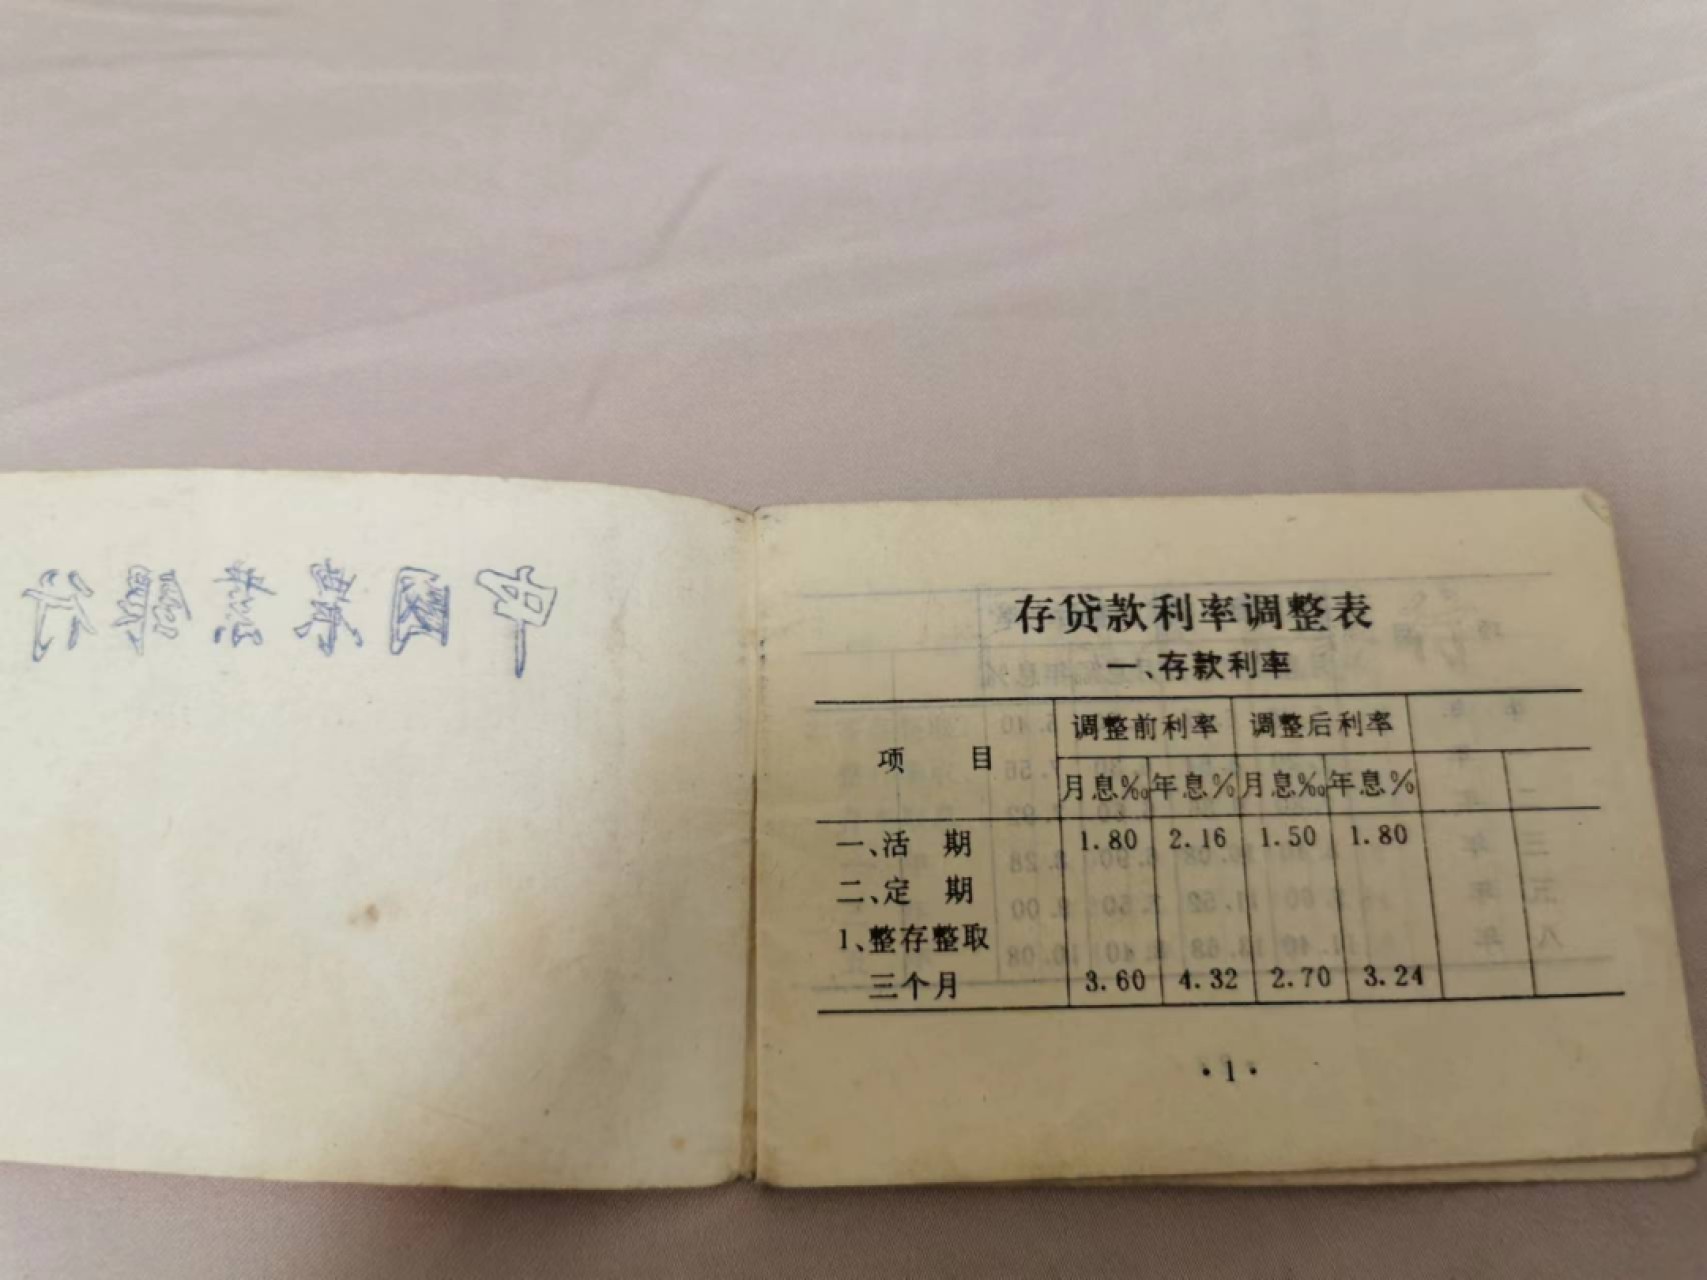 存贷款利率调整表
一、存款利率
项 目 调整前利率 调整后利率
月息‰ 年息% 月息‰ 年息%
一、活 期 1.80 2.16 1.50 1.80
二、定 期
1、整存整取
三个月 3.60 4.32 2.70 3.24
·1·